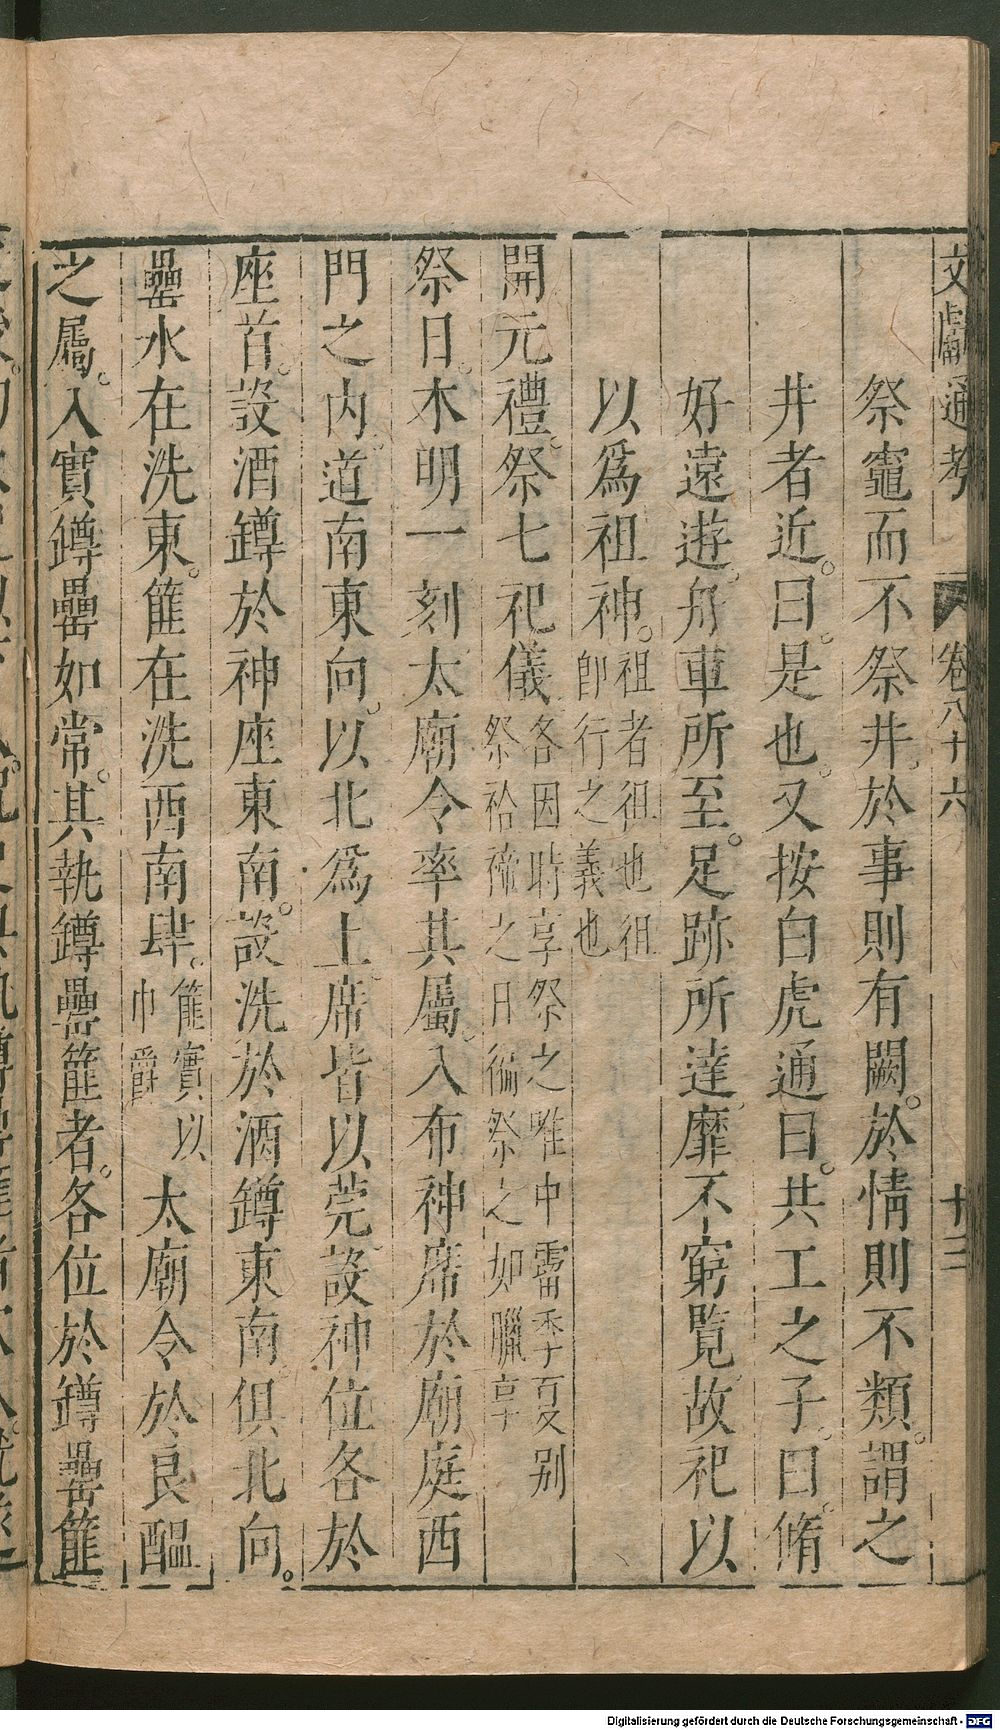 文獻通考 卷八十六 十三
祭竈而不祭井。於事則有闕。於情則不類。謂之
井者近。曰。是也。又按白虎通曰。共工之子。曰脩
好遠遊。舟車所至。足跡所達。靡不窮覽。故祀以
以爲祖神。祖者徂也徂
即行之義也
開元禮。祭七祀儀各因時享祭之唯中霤季夏别
祭祫禘之日徧祭之如臘享
祭日。木明一刻太廟令率其屬。入布神席於廟庭西
門之内。道南東向。以北爲上。席皆以莞。設神位各於
座首。設酒罇於神座東南。設洗於酒罇東南。俱北向。
罍水在洗東。篚在洗西南肆。篚實以
巾爵太廟令於良醖
之屬。入實罇罍如常。其執罇罍篚者。各位於罇罍篚
Digitalisierung gefördert durch die Deutsche Forschungsgemeinschaft - DFG